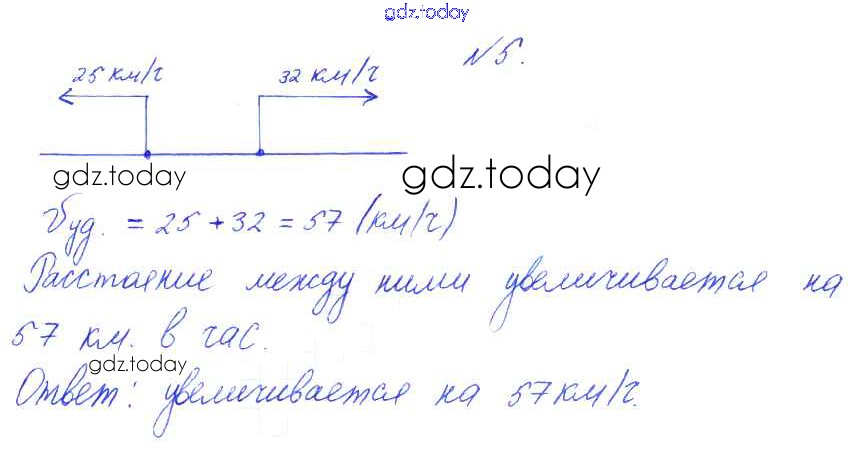 gdz.today
№5.
25 км/ч 32 км/ч
gdz.today gdz.today
Vуд. = 25 + 32 = 57 (км/ч)
Расстояние между ними увеличивается на
57 км. в час.
gdz.today
Ответ: увеличивается на 57 км/ч.